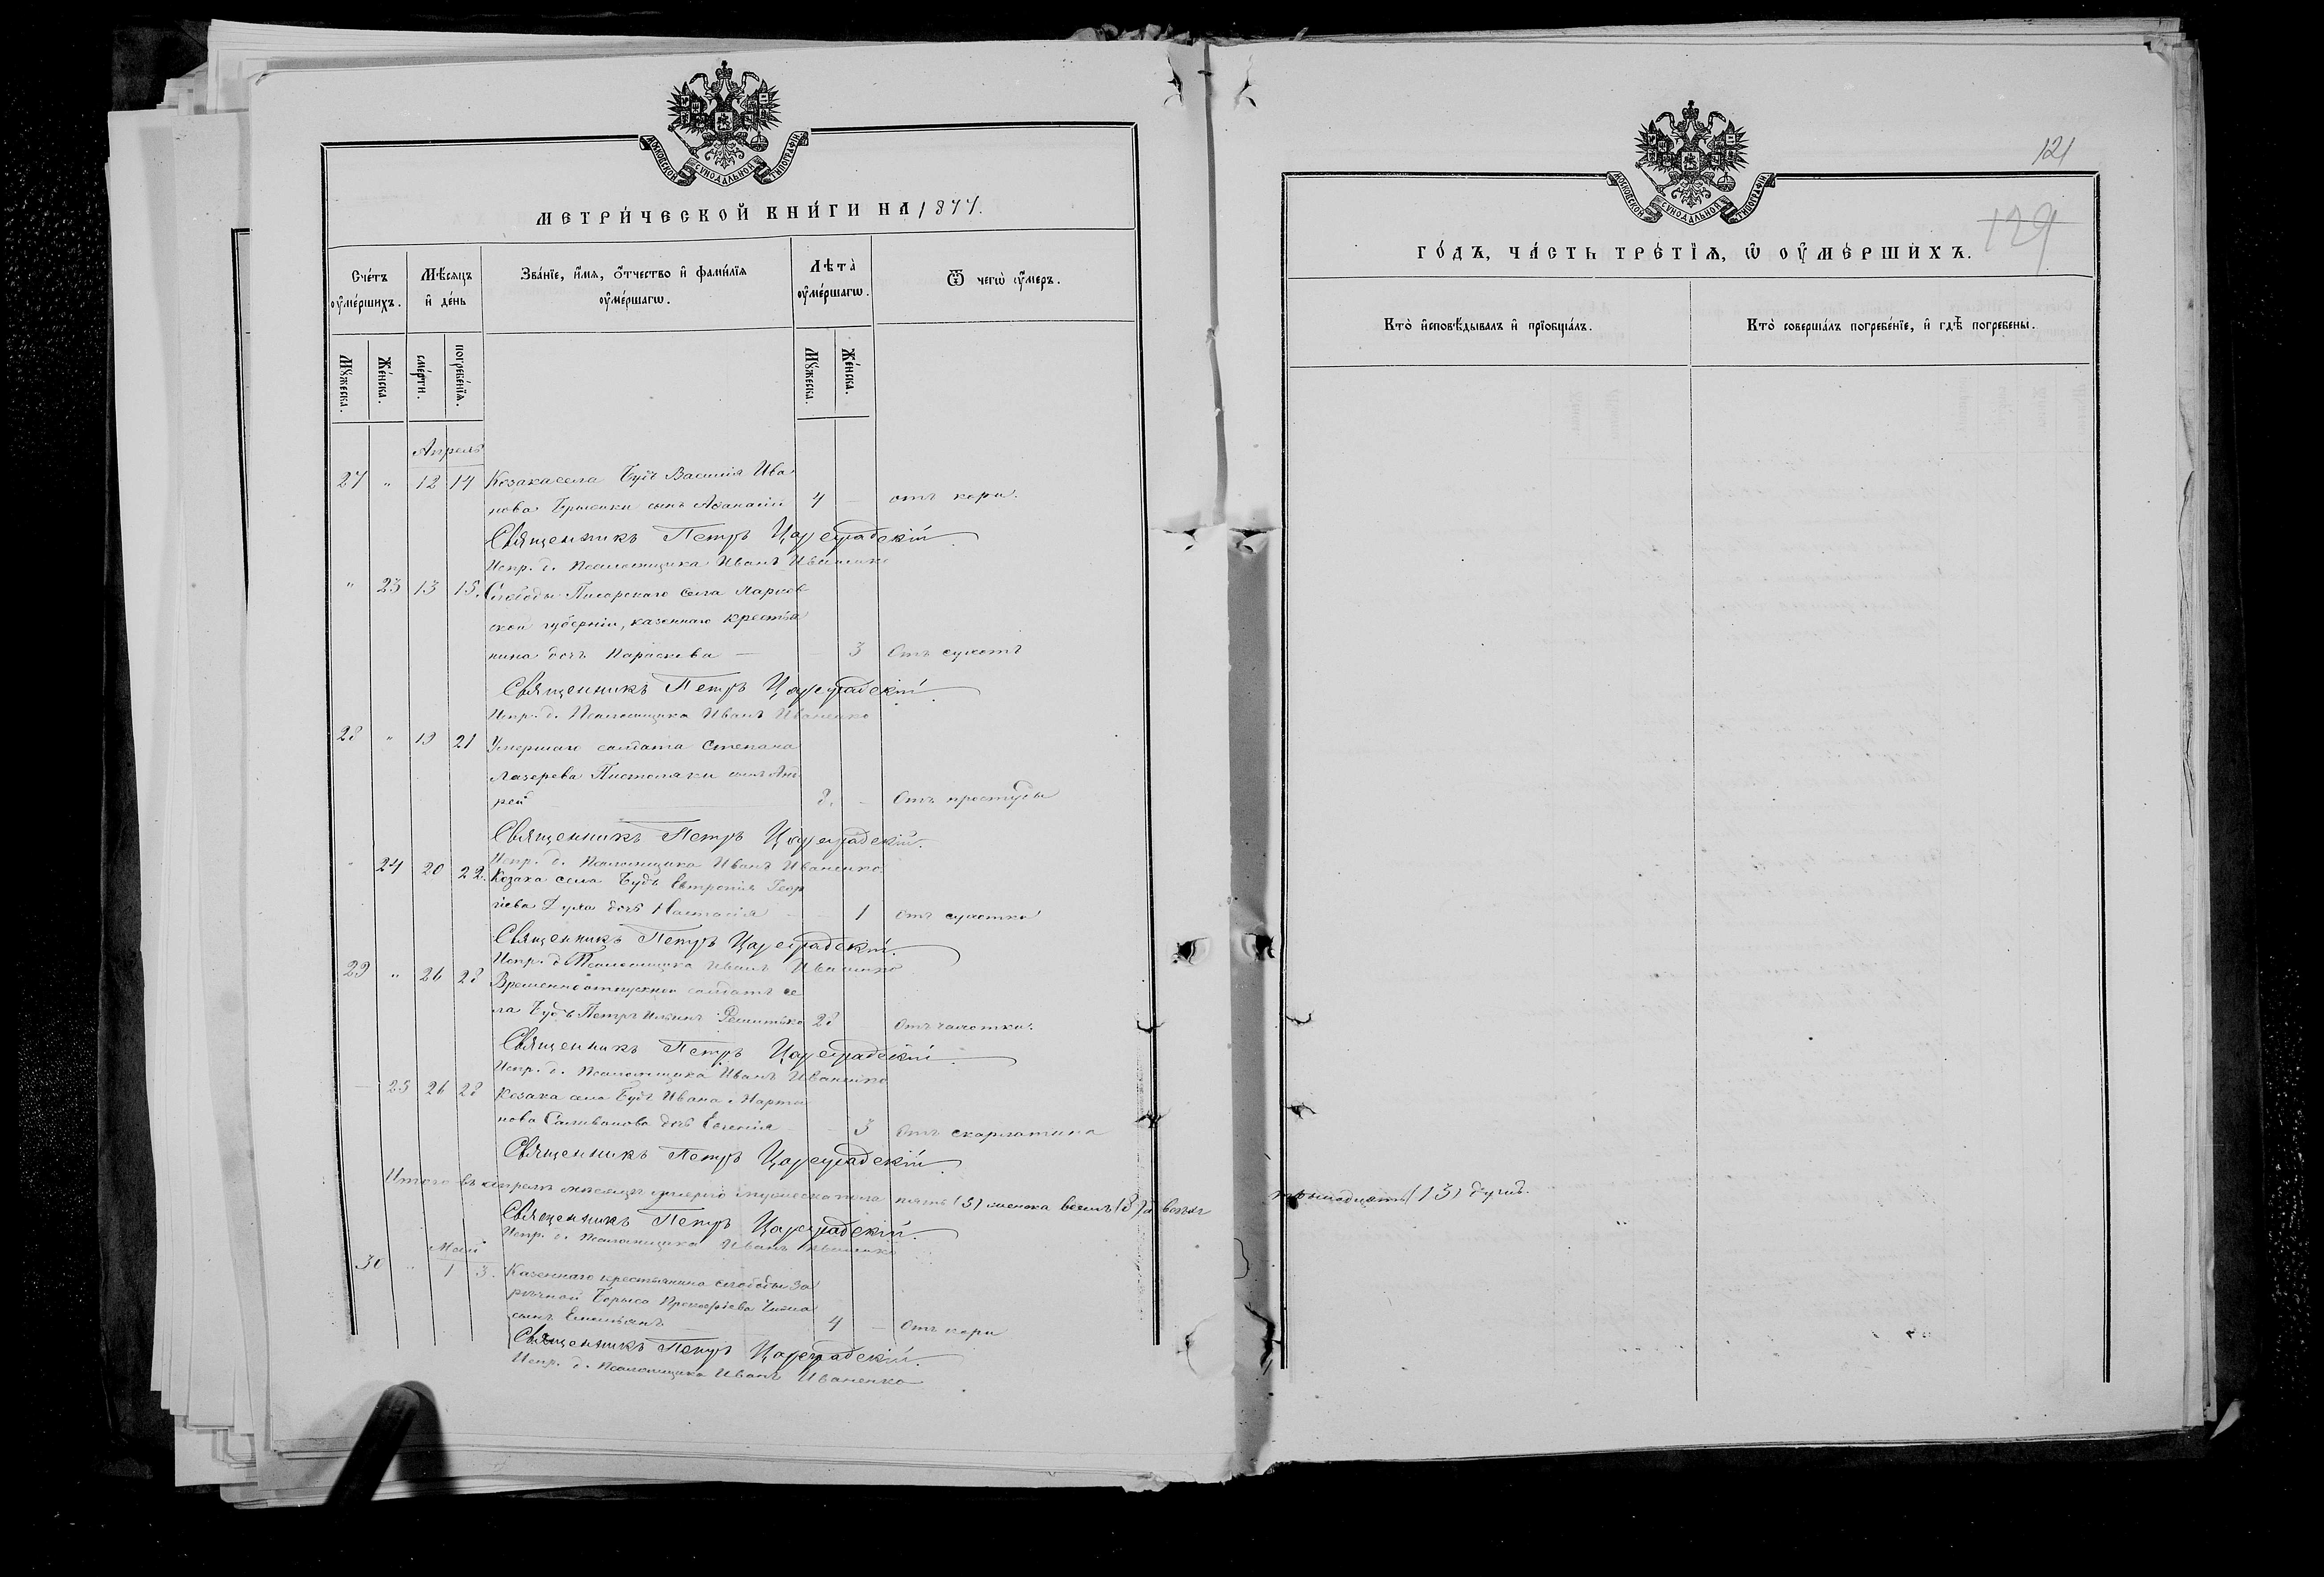 МОСКОВСКОЙ СУНОДАЛЬНОЙ ТИПОГРАФІИ
МЕТРИ́ЧЕСКОЙ КНИ́ГИ НА 1877.
Сче́тъ оу҆ме́ршихъ.
Мѣ́сяцъ и҆ де́нь
Зва́нїе, и҆́мя, ѻ҆́тчество и҆ фами́лїя оу҆ме́ршагѡ.
Лѣта̀ оу҆ме́ршагѡ.
Ѿ чегѡ̀ оу҆́меръ.
Мꙋ́жеска.
Же́нска.
сме́рти.
погребе́нїя.
Мꙋ́жеска.
Же́нска.
Апрель
27 " 12 14 Козака села Будъ Василия Ива
нова Брысики сынъ Афанасий 4 — отъ кори.
Священникъ Петръ Цареградскій
Испр. д. Псаломщика Иванъ Иваненко
" 23 13 15. Слободы села Харков
ской губерніи, казеннаго крестья
нина дочь Параскева — 3 Отъ сухотъ
Священникъ Петръ Цареградскій
Испр. д. Псаломщика Иванъ Иваненко
28 " 19 21 Умершаго солдата Степана
Лазарева сынъ Анд
рей 8. — Отъ простуды
Священникъ Петръ Цареградскій.
Испр. д. Псаломщика Иванъ Иваненко.
" 24 20 22. Козака села Будъ Евтропія Геор
гіева дочь Настасія — 1 отъ сухотки
Священникъ Петръ Цареградскій.
Испр. д. Псаломщика Иванъ Иваненко
29 " 26 28 Временноотпускной солдатъ се
ла Будъ Петръ Ильинъ 28 Отъ чахотки.
Священникъ Петръ Цареградскій
Испр. д. Псаломщика Иванъ Иваненко
— 25 26 28 Козака села Будъ Ивана Марты
нова Саливанова дочь Евгенія — 3 Отъ скарлатина
Священникъ Петръ Цареградскій.
Итого въ апрелѣ мѣсяцѣ умерло мужеска пола пять (5) женска восемь (8) а всехъ
тринадцать (13) душъ.
Священникъ Петръ Цареградскій.
Испр. д. Псаломщика Иванъ Иваненко
Май
30 " 1 3. Казеннаго крестьянина слободы За
речной Бориса Прокофіева
сынъ Емельянъ — 4 — Отъ кори
Священникъ Петръ Цареградскій.
Испр. д. Псаломщика Иванъ Иваненко
121
129
МОСКОВСКОЙ СУНОДАЛЬНОЙ ТИПОГРАФІИ
ГО́ДЪ, ЧА́СТЬ ТРЕ́ТЇѦ, Ѡ҆ ОУ҆МЕ́РШИХЪ.
Кто̀ и҆сповѣ́дывалъ и҆ прїобща́лъ.
Кто̀ соверша́лъ погребе́нїе, и҆ гдѣ̀ погребены̀.